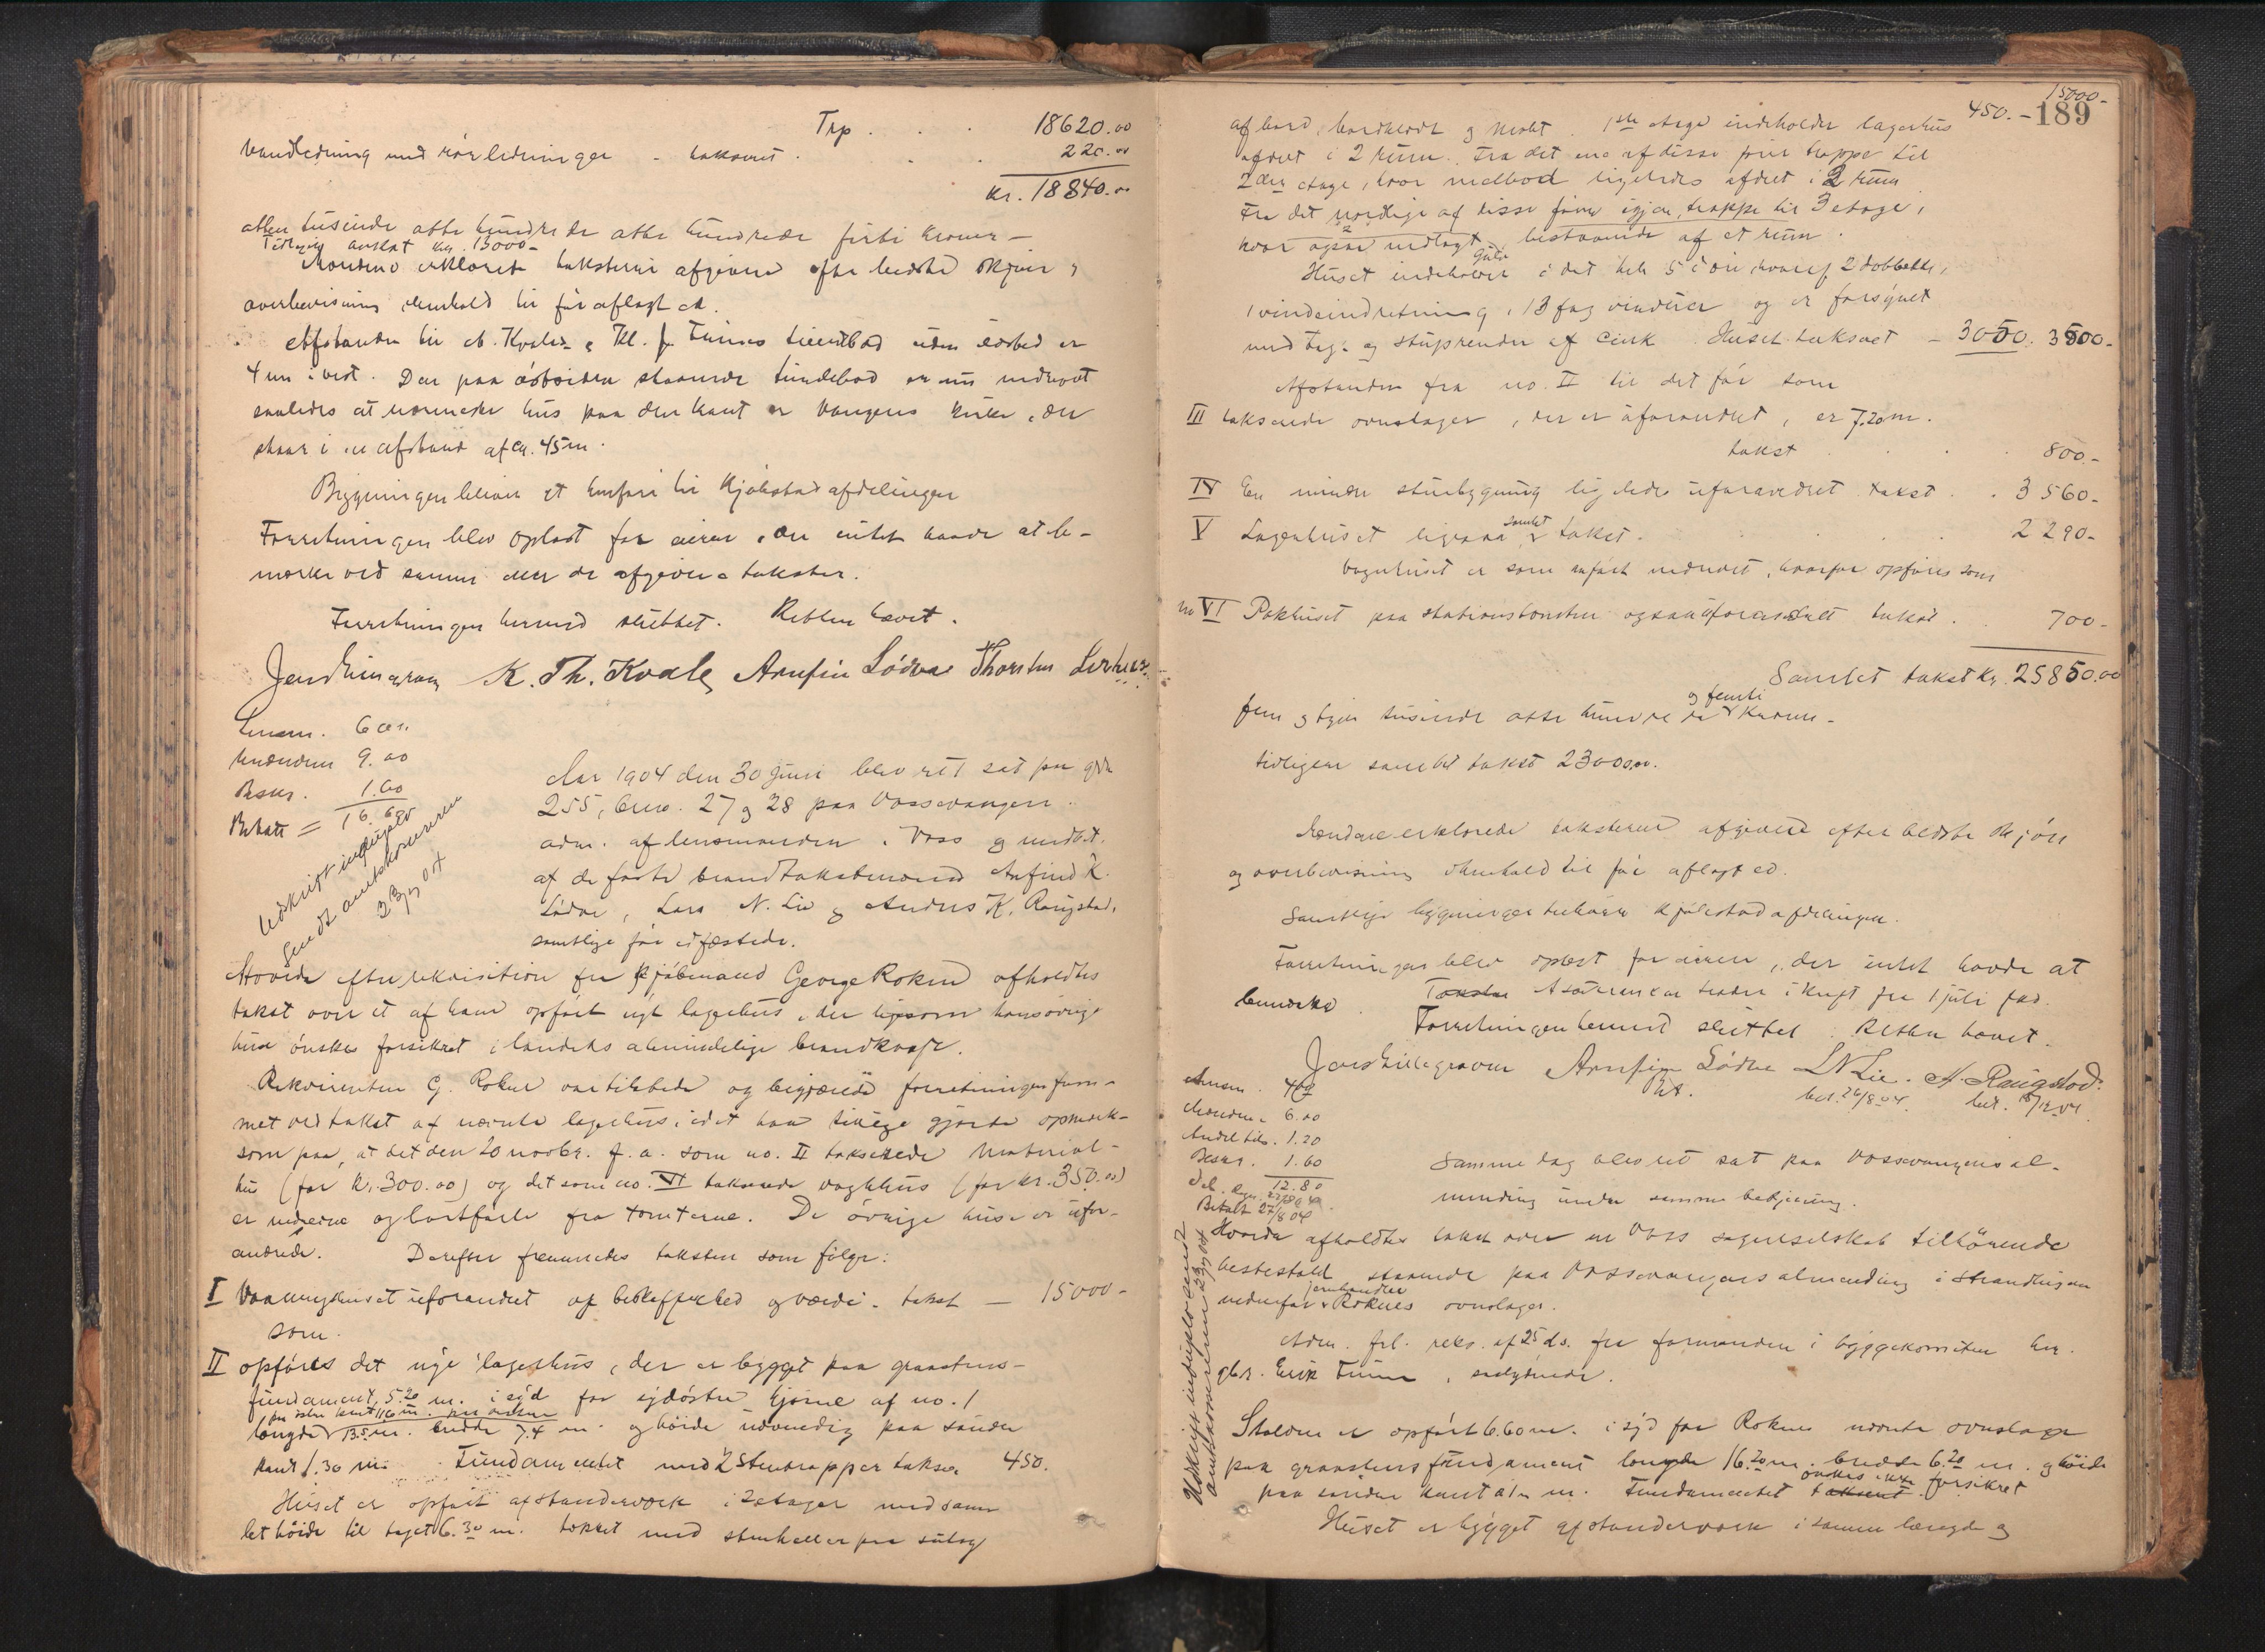 Trp . . . 18620.00
Vandledning med rørledninger - taksered . . . 220.00
Kr. 18840.00
atten tusinde otte hundrede otte hundrede firti kroner -
Tidligere avslat kr. 13000-
Mændene erklærede taksterne afgivne efter bedste skjøn &
overbevisning i henhold til før aflagt ed.
Afstanden til N. Kvales & Kl. Finnes
4 m i vest. Den paa østsiden staaende er nu nedrevet
saaledes at nærmeste hus paa den kant er Vangens kirke, der
staar i en afstand af ca. 45 m.
Bygningen bliver at henføre til Kjøbstadafdelingen
Forretningen blev oplæst for eieren, der intet havde at be-
mærke ved samme eller de afgivne takster.
Forretningen hermed sluttet. Retten hævet.
K. Th. Kvale Arnfin Lødve Thorsten
Lensm. 6.00
Mændene 9.00
Beskr. 1.60
Betalt = 16.60
Udskrift in duplo
sendt amtskontoret
23/7 04
Aar 1904 den 30 Juni blev ret sat paa gde
255, bno. 27 & 28 paa Vossevangen.
adm. af lensmanden i Voss & medbt.
af de faste brandtakstmænd Anfind K.
Lødve, Lars N. Lie & Anders K. Raugstad,
samtlige før edfæstede.
Hvorda efter rekvisition fra Kjøbmand George Rokne afholdtes
takst over et af ham opført nyt lagerhus, der ligesom hans øvrige
huse ønskes forsikret i landets almindelige brandkasse.
Rekvirenten G. Rokne var tilstede og begjærede forretningen frem-
met ved takst af nævnte lagerhus, idet han tillige gjorde opmærk-
som paa, at det den 20 novbr. f. a. som no. II takserede Material-
hus (for kr. 300.00) og det som no. VI takserede vognhus (for kr. 350.00)
er nedrevne og bortførte fra tomterne. De øvrige huse er ufor-
andrede. Derefter fremmedes taksten som følger:
I Vaaningshuset uforandret af beskaffenhed og værdi. takst — 15000-
som.
II opføres det nye lagerhus, der er bygget paa graastens-
fundament, 5.20 m. i syd for sydøstre hjørne af no. 1
paa østre kant 11.60 m. paa
længde 13.5 m. bredde 7.4 m. og høide udvendig paa søndre
kant 1.30 m. Fundamentet med 2 stentrapper takser 450.
Huset er opført af standerværk i 2 etager med sam-
let høide til taget 6.30 m. tækket med stenheller paa sutag
15000-
450.- 189
af bord, bordklædt & malt. 1ste etage indeholder lagerhus
afdelt i 2 rum. Fra det ene af disse fører trappe til
2den etage, hvor melbod ligeledes afdelt i 2 rum
Fra det nordlige af disse fører igjen trappe til 3 etage,
hvor også indlagt, bestaaende af et rum.
Huset indeholder i det hele 5 døre, hvoraf 2 dobbelte,
1 vindeindretning, 13 fag vinduer og er forsynet
med tag- og stuprender af Cink. Huset taksert - 3050. 3500-
Afstanden fra no. II til det før som
III takserede ovnslager, der er uforandret, er 7.20 m.
takst . . . 800.-
IV En mindre stuebygning ligeledes uforandret takst . . 3560-
V Lagerhuset ligesaa samlet takst. . . . 2290-
Vognhuset er som anført nedrevet, hvorfor opføres som
no VI Pakhuset paa stationstomten ogsaa uforandret takst . . 700-
Samlet takst Kr. 25850.00
fem & tyve tusinde otte hundrede & femti Kroner -
tidligere samlet takst 23000.
Mændene erklærede taksterne afgivne efter bedste skjøn
og overbevisning i henhold til før aflagt ed.
Samtlige bygninger tilhører Kjøbstadafdelingen.
Forretningen blev oplæst for eieren, der intet havde at
bemærke. Taksten Assurancen træder i kraft fra 1 juli
Forretningen hermed sluttet. Retten hævet.
Arnfin Lødve L N Lie. A. Raugstad.
bet. bet. 26/8 04. bet. 15/12 04.
Lensm. 4.00
Mændene 6.00
Andel tils. 1.20
Beskr. 1.60
12.80
Betalt 27/8 04
Samme dag blev ret sat paa Vossevangens al-
minding under samme betjening.
Hvorda afholdtes takst over en Voss tilhørende
hestestald staaende paa Vossevangens alminding i Strandlinjen
nedenfor jernhandler Roknes ovnslager.
Adm. frl. rekv. af 25 ds. fra formanden i byggekomiteen hr.
gbr. Erik Finne, sædystende.
Stalden er opført 6.60 m. i syd for Roknes nævnte ovnslager
paa graastensfundament længde 16.20 m. bredde 6.20 m. & høide
paa søndre kant m. Fundamentet taksert ønskes ikke forsikret
Huset er bygget af standerværk i samme længde og
Udskrift in duplo sendt
amtskontoret 23/7 04